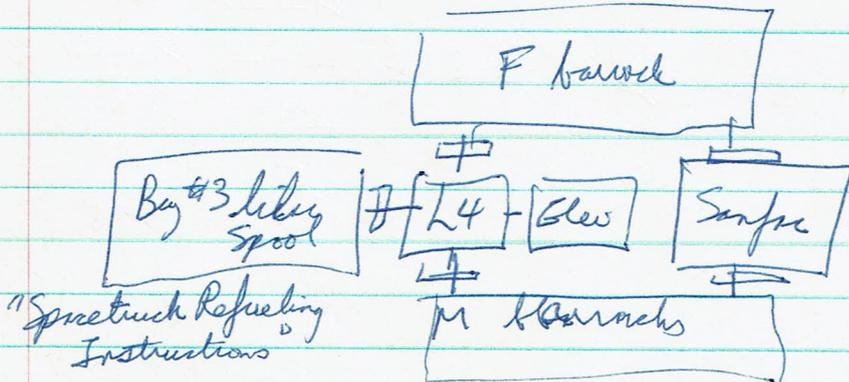 F barrack
Bay #3 library
Spool
L4
Elev
Sanfac
"Spacetruck Refueling
Instructions"
M barracks